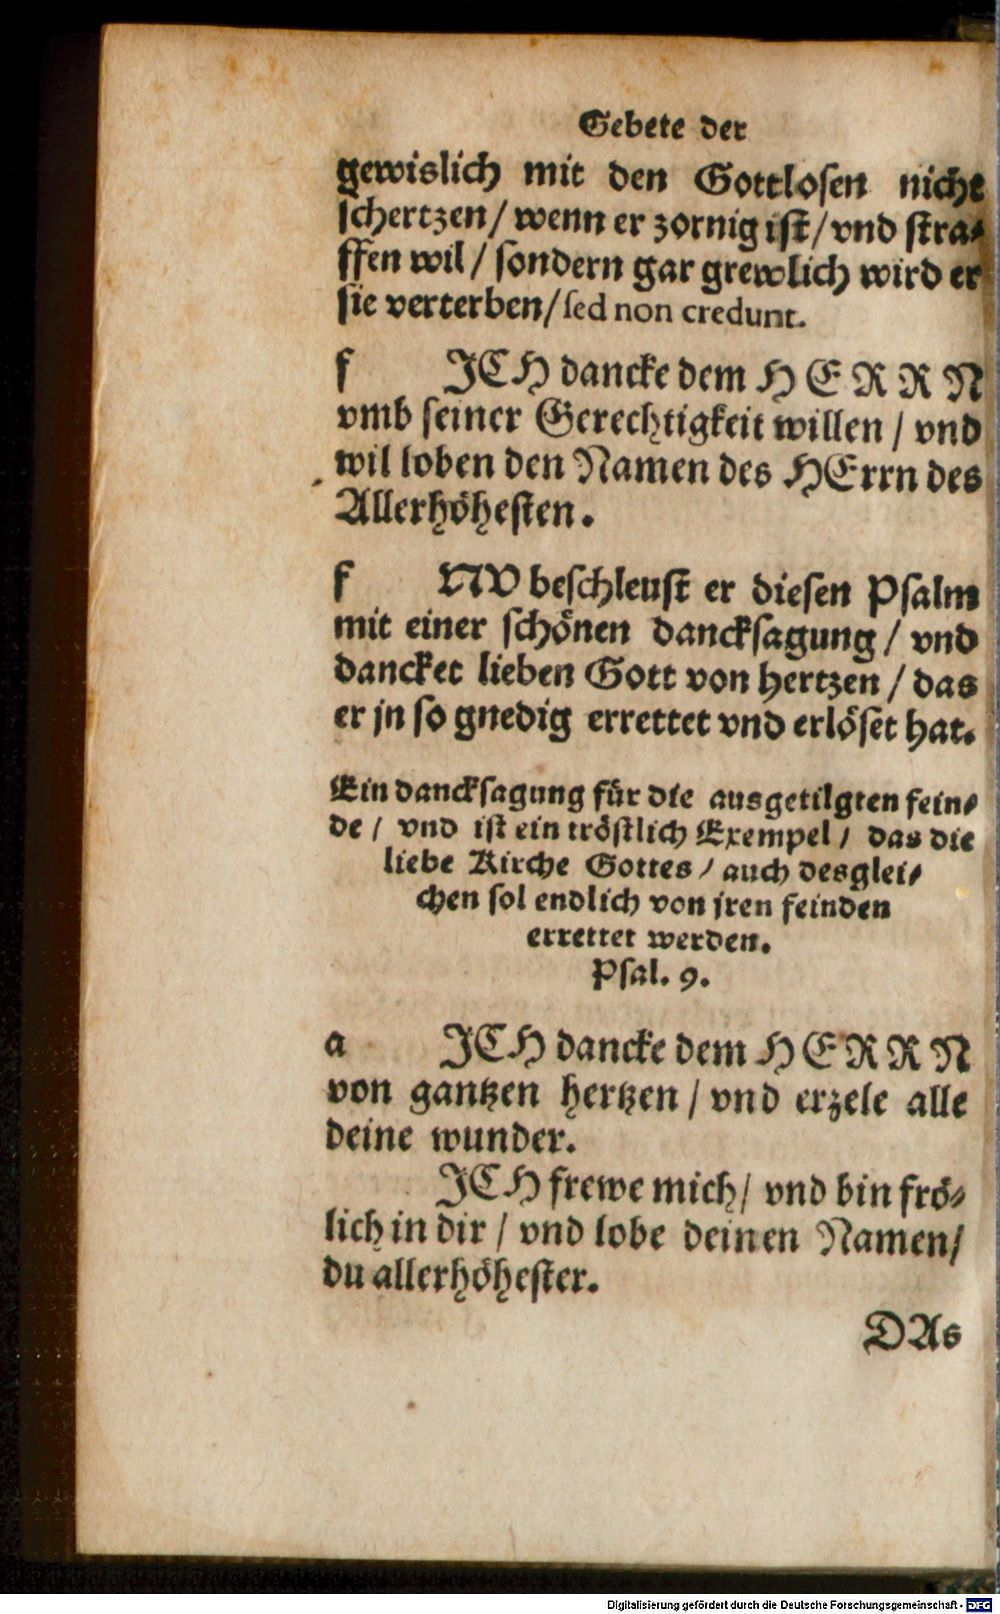 Gebete der
gewislich mit den Gottlosen nicht
schertzen/ wenn er zornig ist/ vnd stra-
ffen wil/ sondern gar grewlich wird er
sie verterben/ sed non credunt.
f JCH dancke dem HERRN
vmb seiner Gerechtigkeit willen/ vnd
wil loben den Namen des HErrn des
Allerhöhesten.
f NV beschleust er diesen Psalm
mit einer schönen dancksagung/ vnd
dancket lieben Gott von hertzen/ das
er jn so gnedig errettet vnd erlöset hat.
Ein dancksagung für die ausgetilgten fein-
de/ vnd ist ein tröstlich Exempel/ das die
liebe Kirche Gottes/ auch desglei-
chen sol endlich von jren feinden
errettet werden.
Psal. 9.
a JCH dancke dem HERRN
von gantzen hertzen/ vnd erzele alle
deine wunder.
JCH frewe mich/ vnd bin frö-
lich in dir/ vnd lobe deinen Namen/
du allerhöhester.
DAs
Digitalisierung gefördert durch die Deutsche Forschungsgemeinschaft - DFG